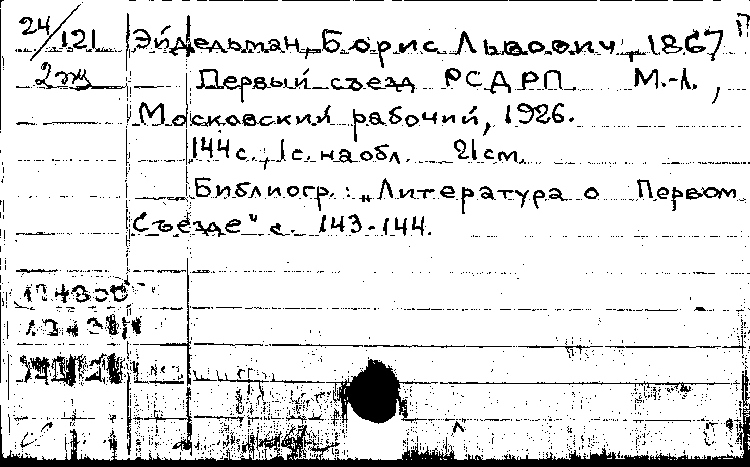 24/121 Эйдельман, Борис Львович, 1867
2эж Первый съезд РСДРП. М.-Л.,
Московский рабочий, 1926.
144 с., 1 с. на обл. 21 см.
Библиогр.: „Литература о Первом
Съезде" с. 143-144.